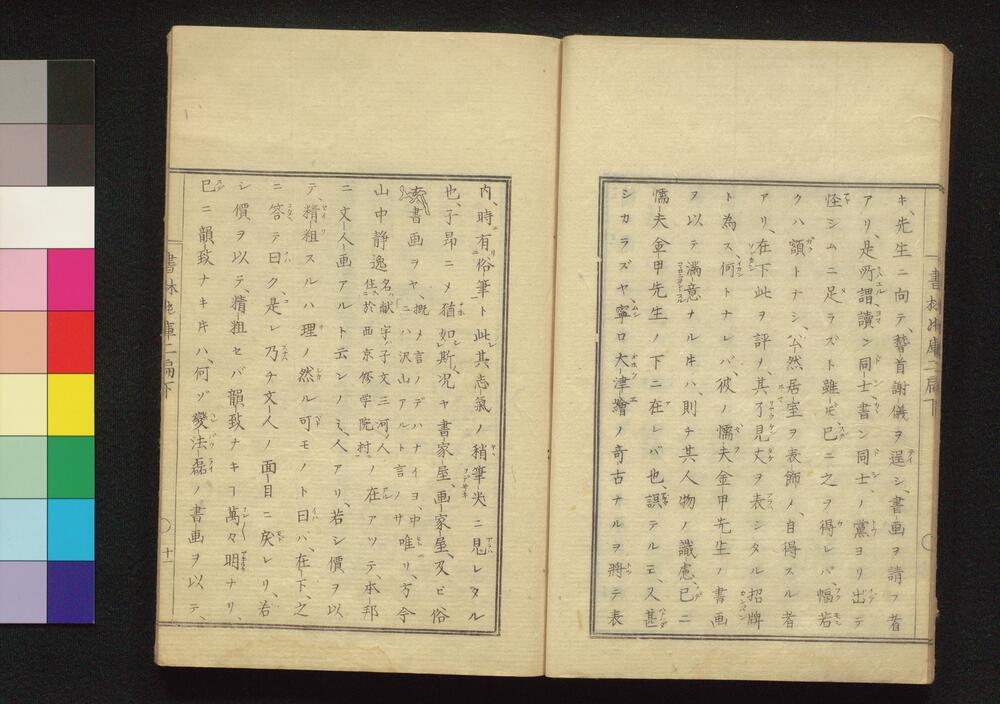 キ、先生ニ向テ、贄首謝儀ヲ逞シ、書画ヲ請フ者
アリ、是所謂、讀ン同士、書ン同士ノ黨ヨリ出テ
怪シムニ足ラズト雖ヒ、已ニ之ヲ得レバ、幅若
クハ額トナシ、公然居室ヲ表飾ノ、自得スル者
アリ、在下此ヲ評ヲ、其了見丈ヲ表シタル招牌
ト為ス、何トナレバ、彼ノ懦夫金甲先生ノ書画
ヲ以テ満意ナル片ハ、則チ其人物ノ識慮、已ニ
懦夫金甲先生ノ下ニ在レバ也、誤テルモ、又甚
シカラズヤ、寧ロ大津繪ノ奇古ナルヲ將テ表
内、時有俗筆ト此其志氣ノ稍筆尖ニ見レタル
也、子昂ニメ猶如斯、况ヤ書家屋、画家屋、又ビ俗
書画ヲヤ、概メ言ノデハナイヨ、中ニハ沢山アルト言ノサ唯リ、方今
山中静逸名献字子文三河ノ人住於西京修学院村ノ在アツテ、本邦
ニ文人画アルト云ンノミ、人アリ若シ價ヲ以
テ、精粗スルハ理ノ然ル可モノト曰バ、在下、之
ニ答テ曰ク、是レ乃チ文人ノ面目ニ戻レリ、若
シ價ヲ以テ、精粗セバ韻致ナキヿ萬々明ナリ、
已ニ韻致ナキ片ハ、何ゾ變法磊ノ書画ヲ以テ、
書林
庫二編下
十一